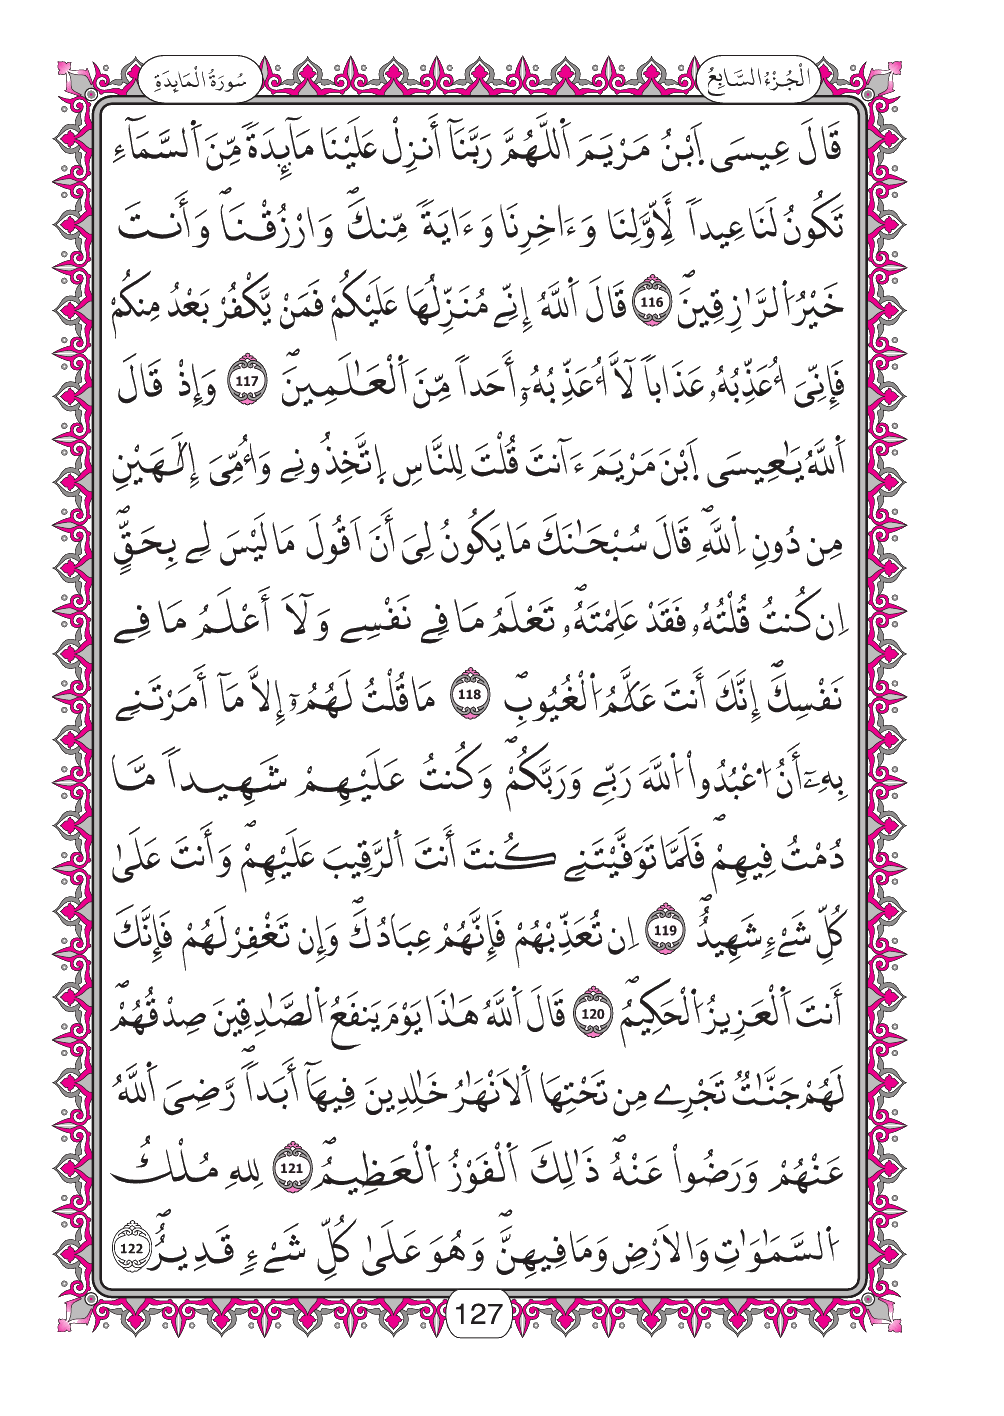 الْجُزْءُ السَّابِعُ
سُورَةُ الْمَايِٕدَةِ
قَالَ عِيسَى اَ۪بْنُ مَرْيَمَ اَ۬للَّهُمَّ رَبَّنَآ أَنزِلْ عَلَيْنَا مَآيِٕدَةً مِّنَ اَ۬لسَّمَآءِ
تَكُونُ لَنَا عِيداً لَأِوَّلِنَا وَءَاخِرِنَا وَءَايَةً مِّنكَۖ وَارْزُقْنَاۖ وَأَنتَ
خَيْرُ اُ۬لرَّٰزِقِينَۖ 116 قَالَ اَ۬للَّهُ إِنِّے مُنَزِّلُهَا عَلَيْكُمْ فَمَنْ يَّكْفُرْ بَعْدُ مِنكُمْ
فَإِنِّيَ أُعَذِّبُهُۥ عَذَاباً لَّآ أُعَذِّبُهُۥٓ أَحَداً مِّنَ اَ۬لْعَٰلَمِينَۖ 117 وَإِذْ قَالَ
اَ۬للَّهُ يَٰعِيسَى اَ۪بْنَ مَرْيَمَ ءَآنتَ قُلْتَ لِلنَّاسِ اِ۪تَّخِذُونِے وَأُمِّيَ إِلَٰهَيْنِ
مِن دُونِ اِ۬للَّهِۖ قَالَ سُبْحَٰنَكَ مَا يَكُونُ لِيَ أَنَ اَقُولَ مَا لَيْسَ لِے بِحَقٍّۖ
اِن كُنتُ قُلْتُهُۥ فَقَدْ عَلِمْتَهُۥۖ تَعْلَمُ مَا فِے نَفْسِے وَلَآ أَعْلَمُ مَا فِے
نَفْسِكَۖ إِنَّكَ أَنتَ عَلَّٰمُ اُ۬لْغُيُوبِۖ 118 مَا قُلْتُ لَهُمُۥٓ إِلَّا مَآ أَمَرْتَنِے
بِهِۦٓ أَنُ اُ۟عْبُدُواْ اُ۬للَّهَ رَبِّے وَرَبَّكُمْۖ وَكُنتُ عَلَيْهِمْ شَهِيداً مَّا
دُمْتُ فِيهِمْۖ فَلَمَّا تَوَفَّيْتَنِے كُنتَ أَنتَ اَ۬لرَّقِيبَ عَلَيْهِمْۖ وَأَنتَ عَلَىٰ
كُلِّ شَےْءٖ شَهِيدٌۖ 119 اِن تُعَذِّبْهُمْ فَإِنَّهُمْ عِبَادُكَۖ وَإِن تَغْفِرْ لَهُمْ فَإِنَّكَ
أَنتَ اَ۬لْعَزِيزُ اُ۬لْحَكِيمُۖ 120 قَالَ اَ۬للَّهُ هَٰذَا يَوْمَ يَنفَعُ اُ۬لصَّٰدِقِينَ صِدْقُهُمْۖ
لَهُمْ جَنَّٰتٌ تَجْرِے مِن تَحْتِهَا اَ۬لَانْهَٰرُ خَٰلِدِينَ فِيهَآ أَبَداًۖ رَّضِيَ اَ۬للَّهُ
عَنْهُمْ وَرَضُواْ عَنْهُۖ ذَٰلِكَ اَ۬لْفَوْزُ اُ۬لْعَظِيمُۖ 121 لِلهِ مُلْكُ
اُ۬لسَّمَٰوَٰتِ وَالَارْضِ وَمَا فِيهِنَّۖ وَهُوَ عَلَىٰ كُلِّ شَےْءٖ قَدِيرٌۖ 122
127